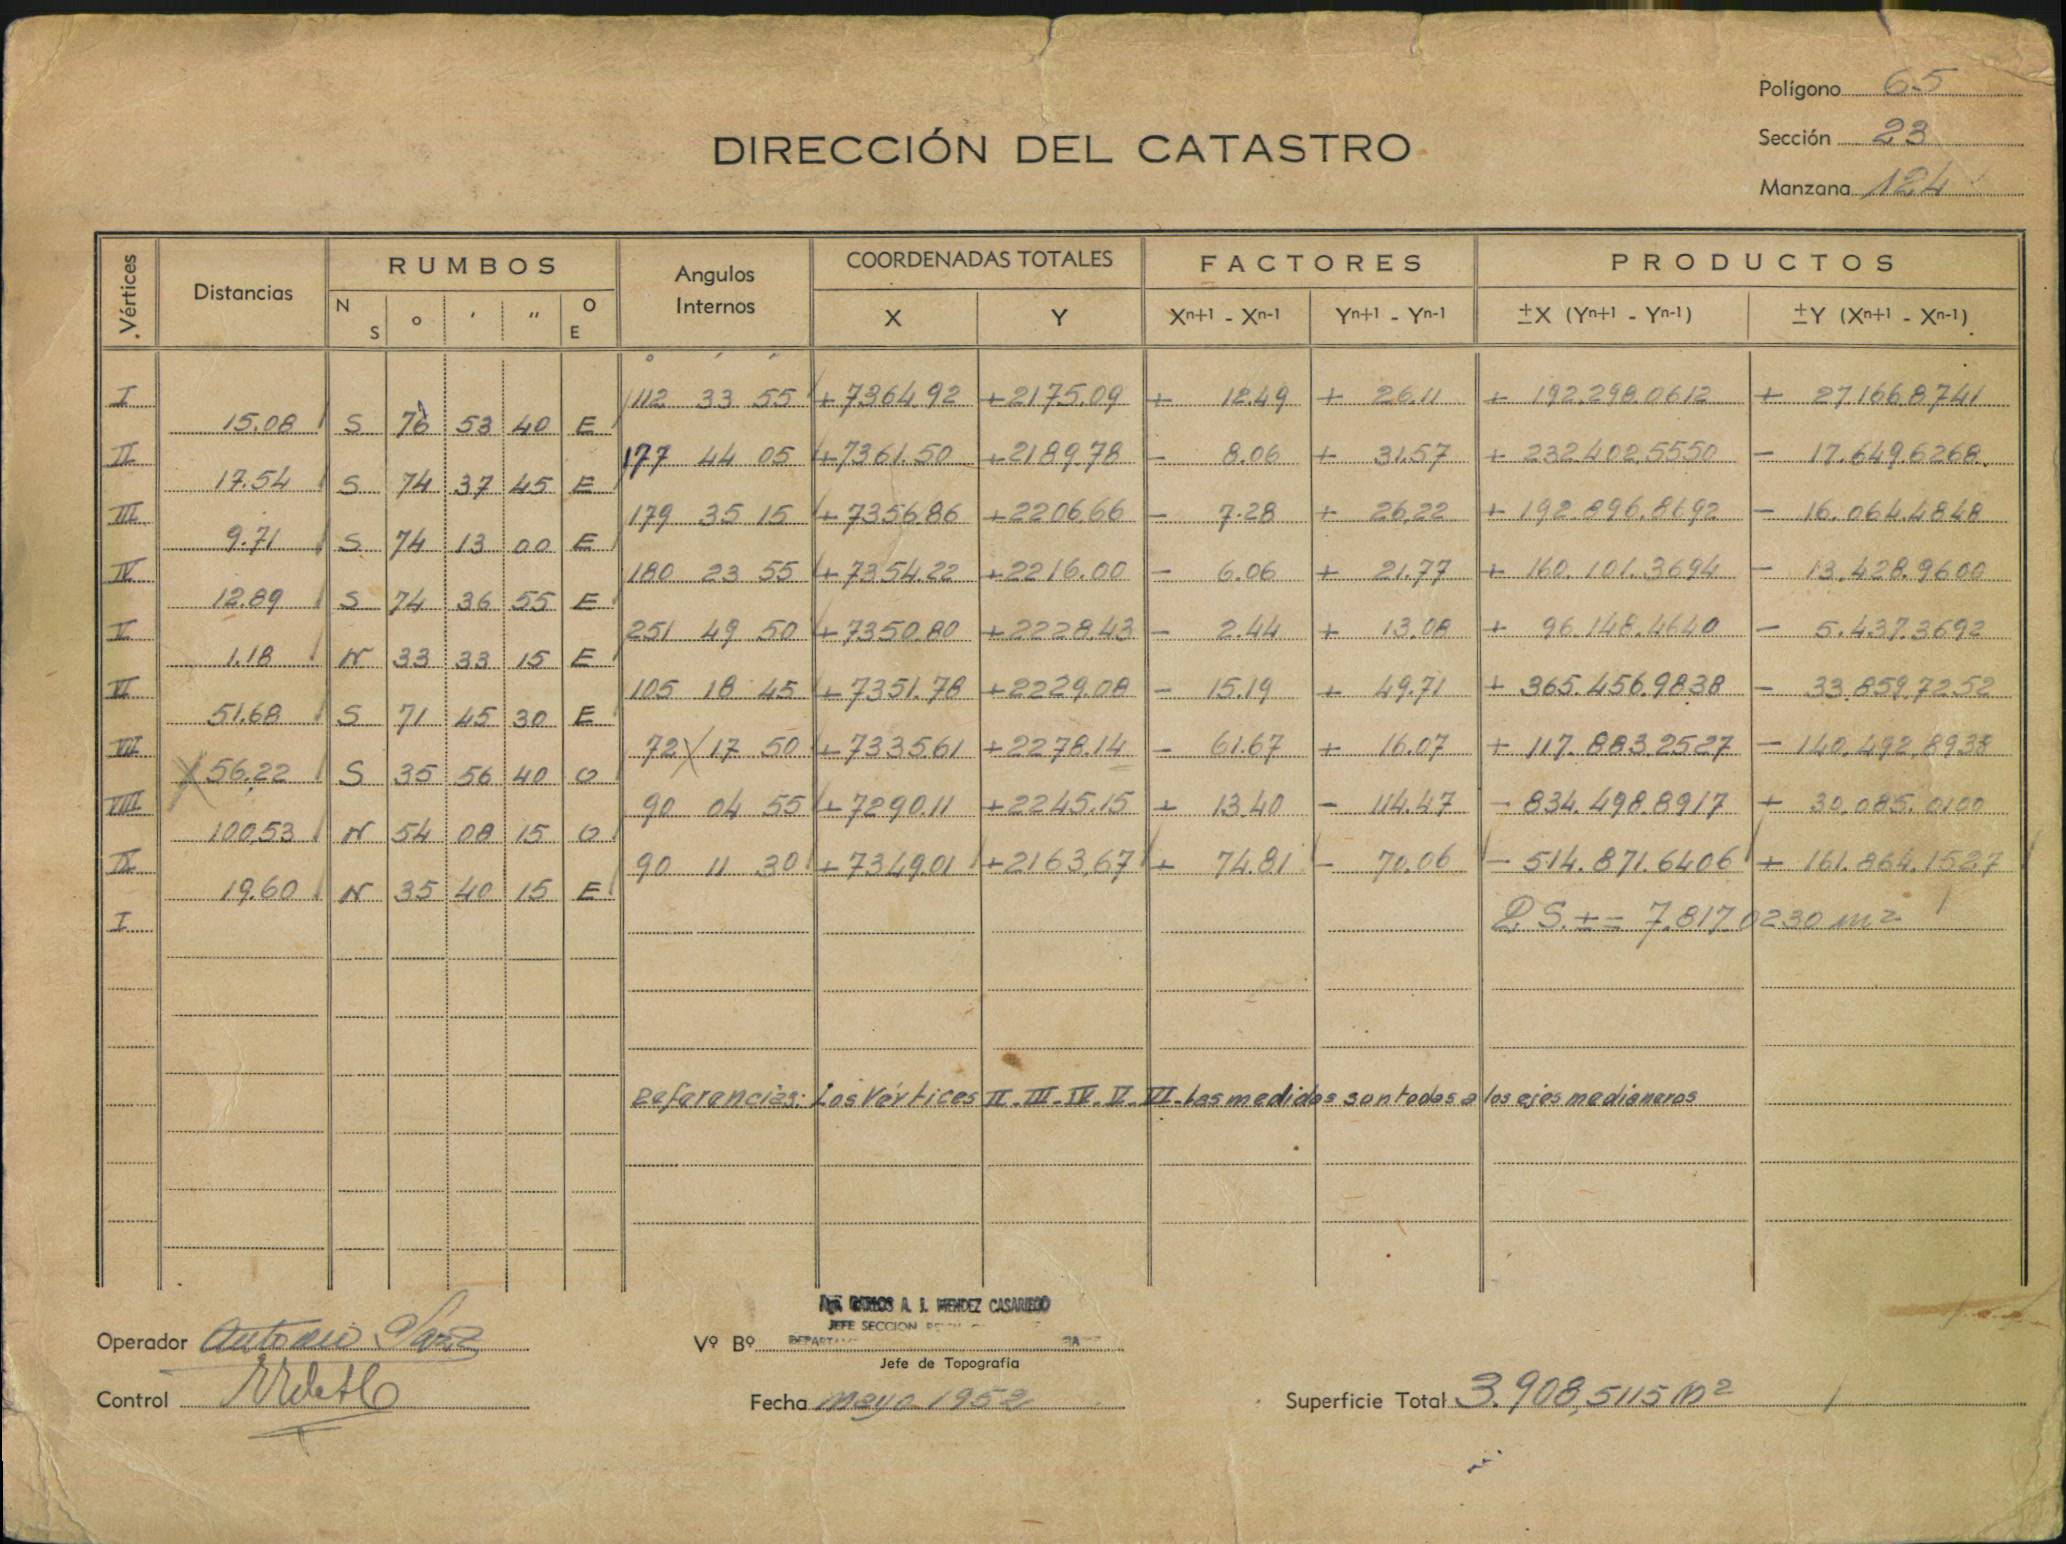 Polígono 65
DIRECCIÓN DEL CATASTRO
Sección 23
Manzana 124
Vértices Distancias RUMBOS Angulos Internos COORDENADAS TOTALES FACTORES PRODUCTOS
N S ° ' " O E X Y Xn+1 - Xn-1 Yn+1 - Yn-1 ±X (Yn+1 - Yn-1) ±Y (Xn+1 - Xn-1)
° ' "
I 112 33 55 +7364.92 +2175.09 + 12.49 + 26.11 + 192.298.0612 + 27.166.8741
15.08 S 76 53 40 E
II 177 44 05 +7361.50 +2189.78 - 8.06 + 31.57 + 232402.5550 - 17.649.6268
17.54 S 74 37 45 E
III 179 35 15 +7356.86 +2206.66 - 7.28 + 26.22 + 192.896.8692 - 16.064.4848
9.71 S 74 13 00 E
IV 180 23 55 +7354.22 +2216.00 - 6.06 + 21.77 + 160.101.3694 - 13.428.9600
12.89 S 74 36 55 E
V 251 49 50 +7350.80 +2228.43 - 2.44 + 13.08 + 96.148.4640 - 5.437.3692
1.18 N 33 33 15 E
VI 105 18 45 +7351.78 +2229.08 - 15.19 + 49.71 + 365.456.9838 - 33.859.7252
51.68 S 71 45 30 E
VII 72 17 50 +7335.61 +2278.14 - 61.67 + 16.07 + 117.883.2527 - 140.492.8938
56.22 S 35 56 40 O
VIII 90 04 55 +7290.11 +2245.15 + 13.40 - 114.47 - 834.498.8917 + 30.085.0100
100.53 N 54 08 15 O
IX 90 11 30 +7349.01 +2163.67 + 74.81 - 70.06 - 514.871.6406 + 161.864.1527
19.60 N 35 40 15 E
I 2.S. ± = 7.817.0230 m2
Referencias: Los Vértices II-III-IV-V-VI-Las medidas son todas a los ejes medianeros
A. J. MENDEZ CASARIEGO
JEFE SECCION
Operador Antonio
Vº Bº
Jefe de Topografia
Control
Fecha Mayo 1952
Superficie Total 3.908,5115 m2